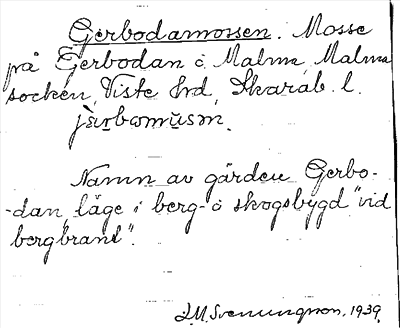 Gerbodamossen. Mosse
på Gerbodan å Malma, Malma
socken, Viste hrd, Skarab. l.
Namn av gården Gerbo-
-dan, läge i berg- o skogsbygd "vid
bergbrant".
J.M. Svenungsson, 1939.